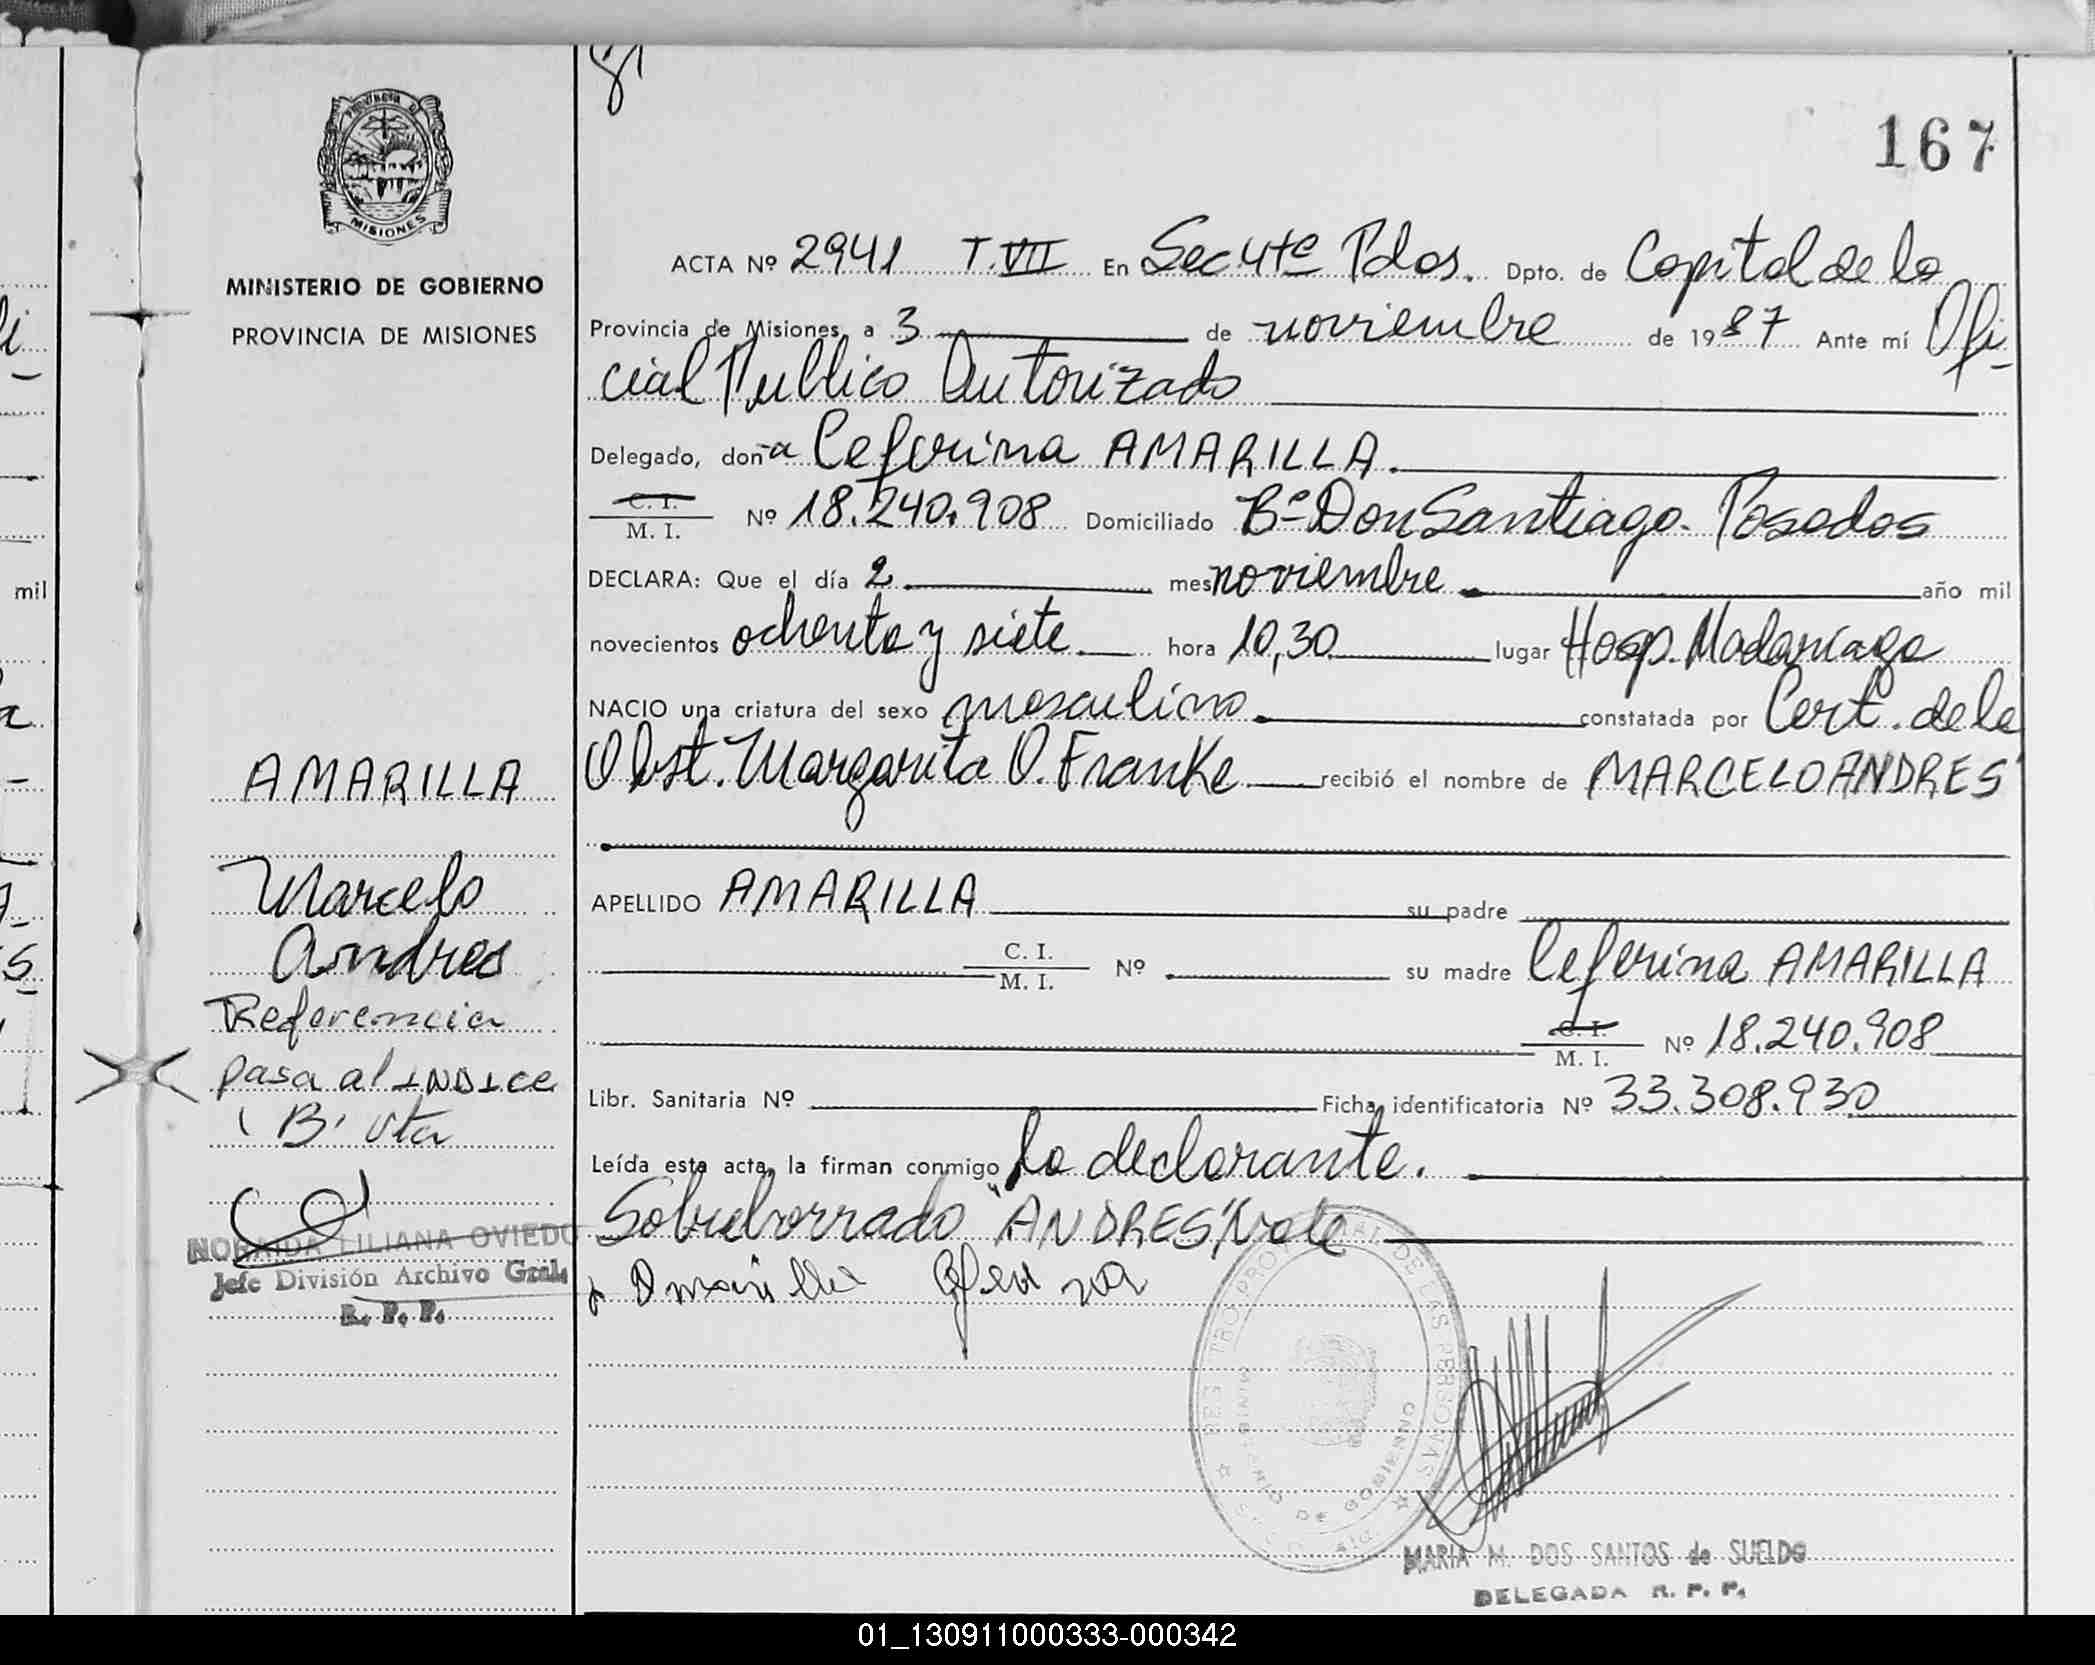 167
PROVINCIA DE
MISIONES
MINISTERIO DE GOBIERNO
PROVINCIA DE MISIONES
ACTA Nº 2941 T. VII En Sec 4te Pdas. Dpto. de Capital de la
Provincia de Misiones, a 3 de noviembre de 1987 Ante mí Ofi-
cial Publico Autorizado
Delegado, doña Ceferina AMARILLA.
C. I.
M. I. Nº 18.240.908 Domiciliado Bº Don Santiago. Posadas
DECLARA: Que el día 2 mes noviembre año mil
novecientos ochenta y siete hora 10,30 lugar Hosp. Madariaga
NACIO una criatura del sexo masculino. constatada por Cert. de la
Obst. Margarita O. Franke recibió el nombre de MARCELO ANDRES
APELLIDO AMARILLA su padre
C. I.
M. I. Nº su madre Ceferina AMARILLA
C. I.
M. I. Nº 18.240.908
Libr. Sanitaria Nº Ficha identificatoria Nº 33.308.930
Leída esta acta, la firman conmigo la declarante.
Sobreborrado "ANDRES" Vale
Amarilla Ceferina
AMARILLA
Marcelo
Andres
Referencia
pasa al INDICE
"B" vta
NORAIDA LILIANA OVIEDO
Jefe División Archivo Gral.
R. P. P.
REGISTRO PROVINCIAL DE LAS PERSONAS
MINISTERIO DE GOBIERNO
MARIA M. DOS SANTOS de SUELDO
DELEGADA R. P. P.
mil
01_130911000333-000342